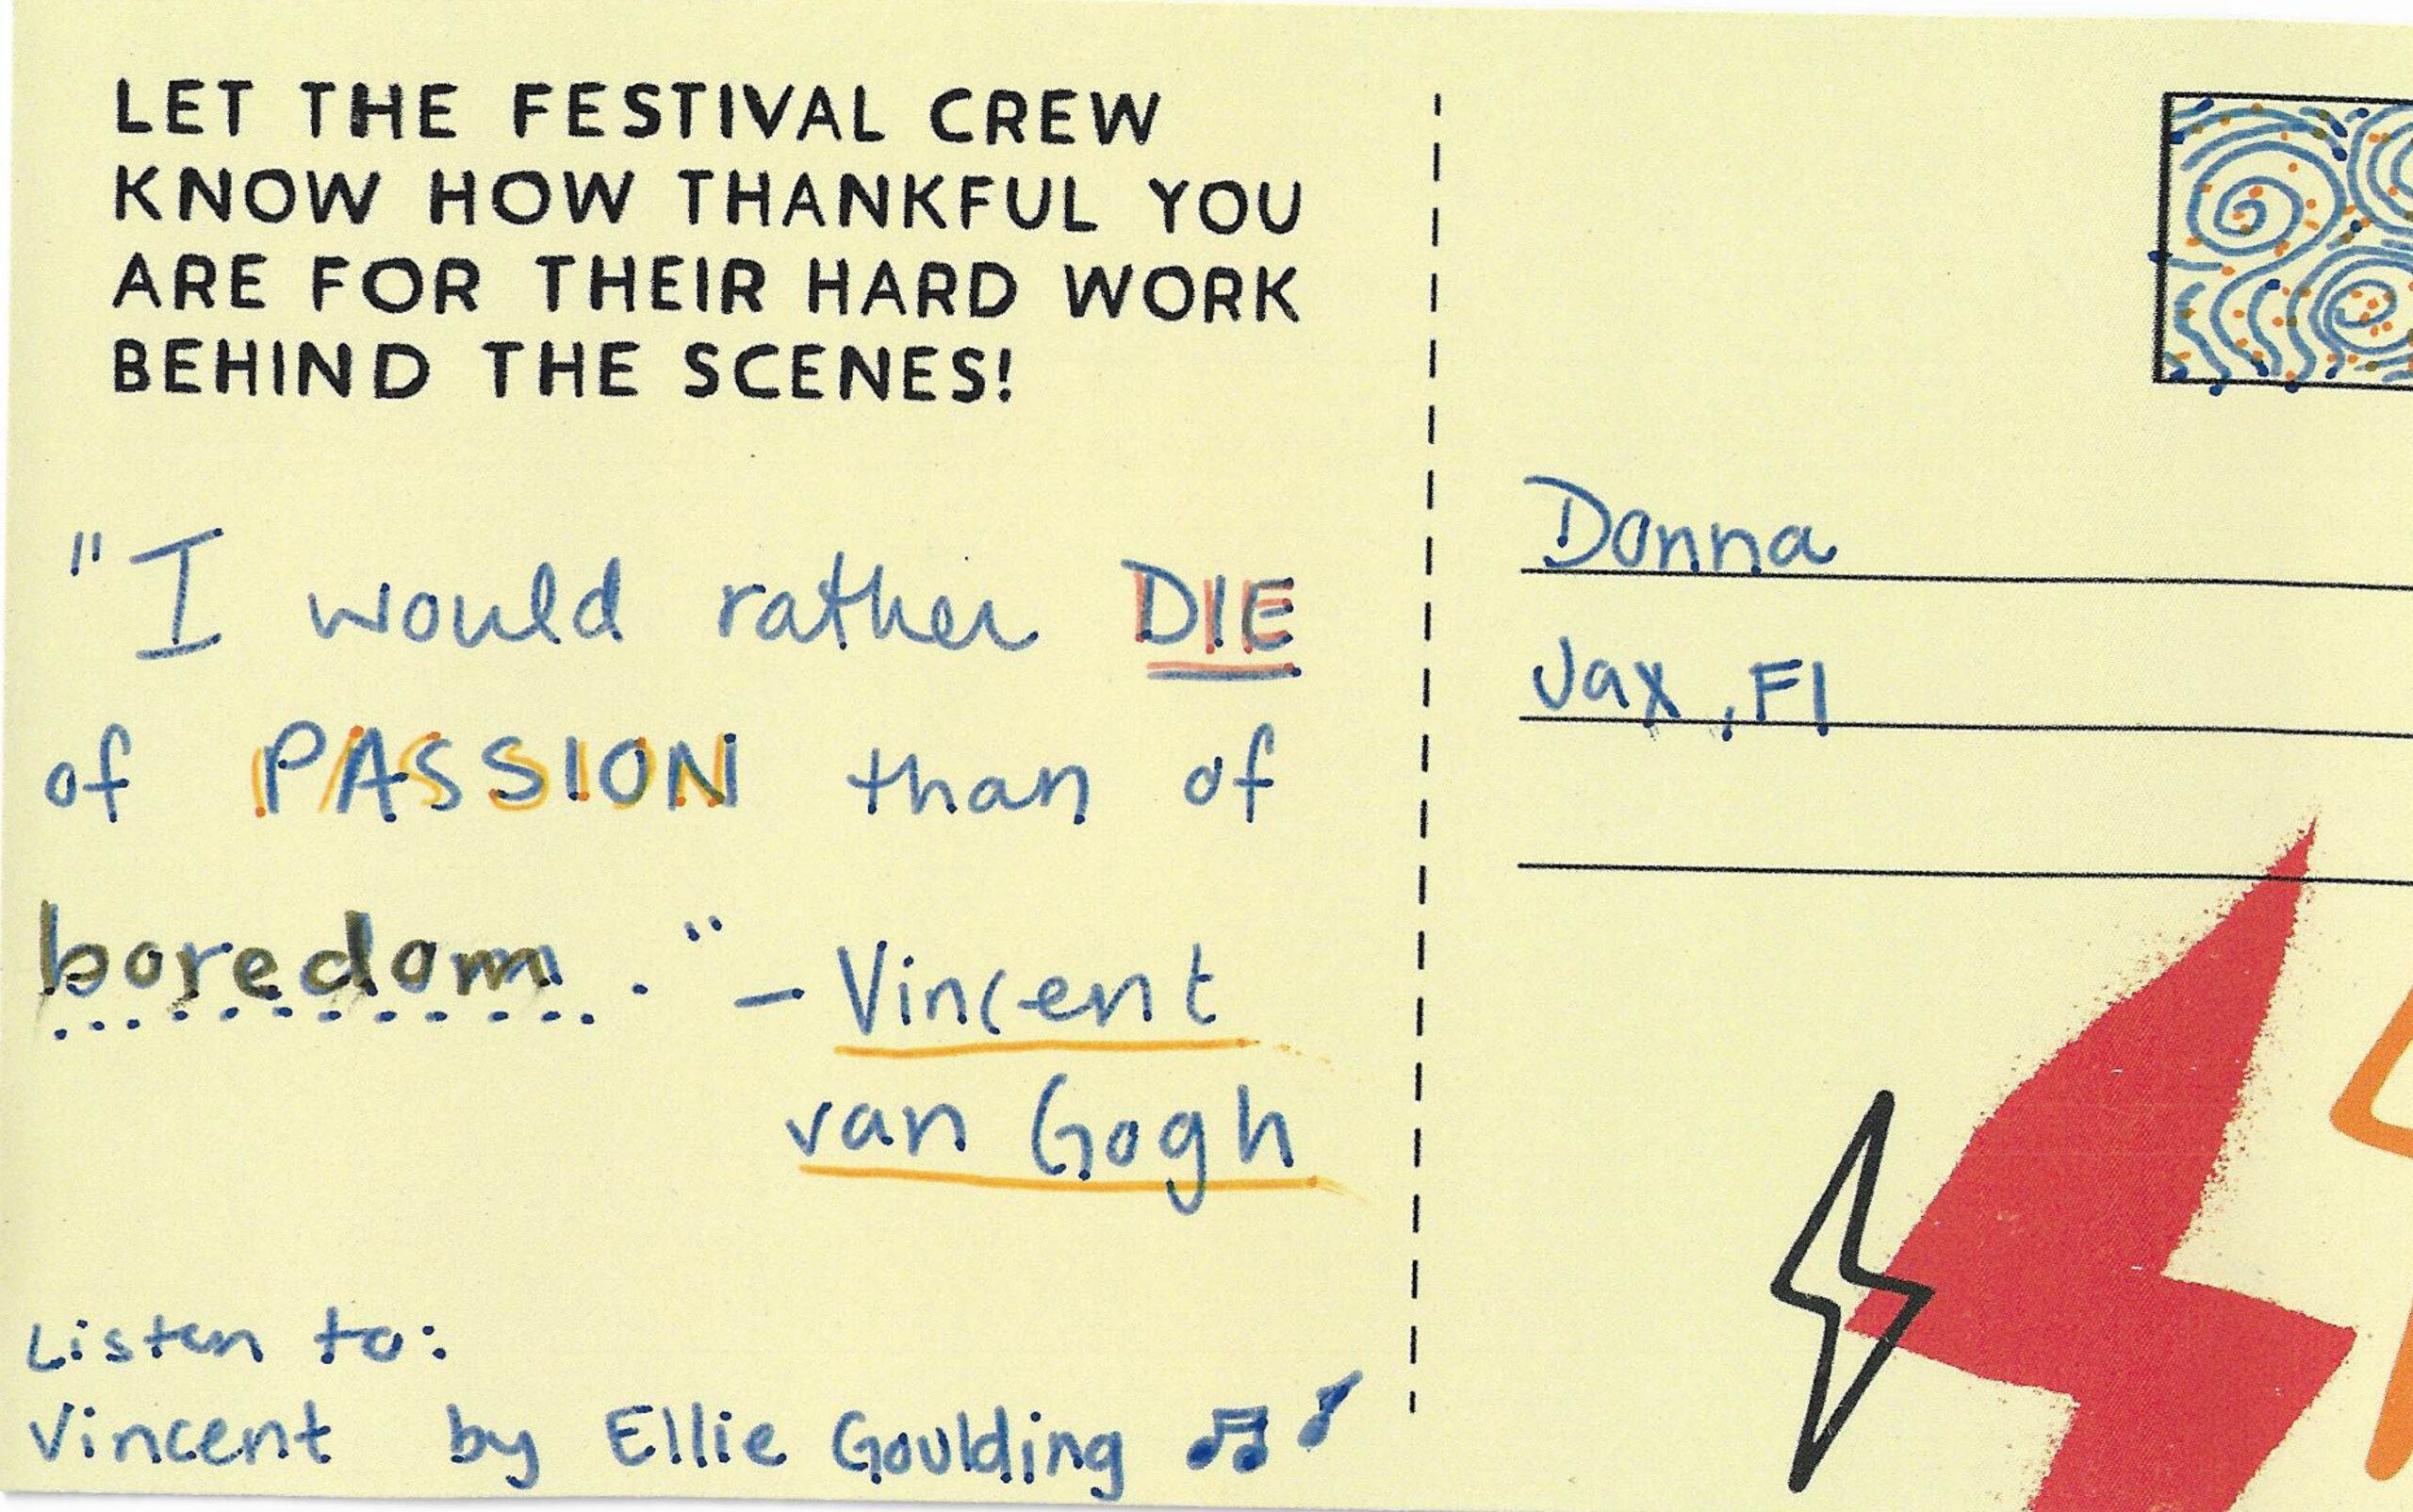 LET THE FESTIVAL CREW
KNOW HOW THANKFUL YOU
ARE FOR THEIR HARD WORK
BEHIND THE SCENES!
"I would rather DIE
of PASSION than of
boredom." - Vincent
van Gogh
Listen to:
Vincent by Ellie Goulding
Donna
Jax, Fl